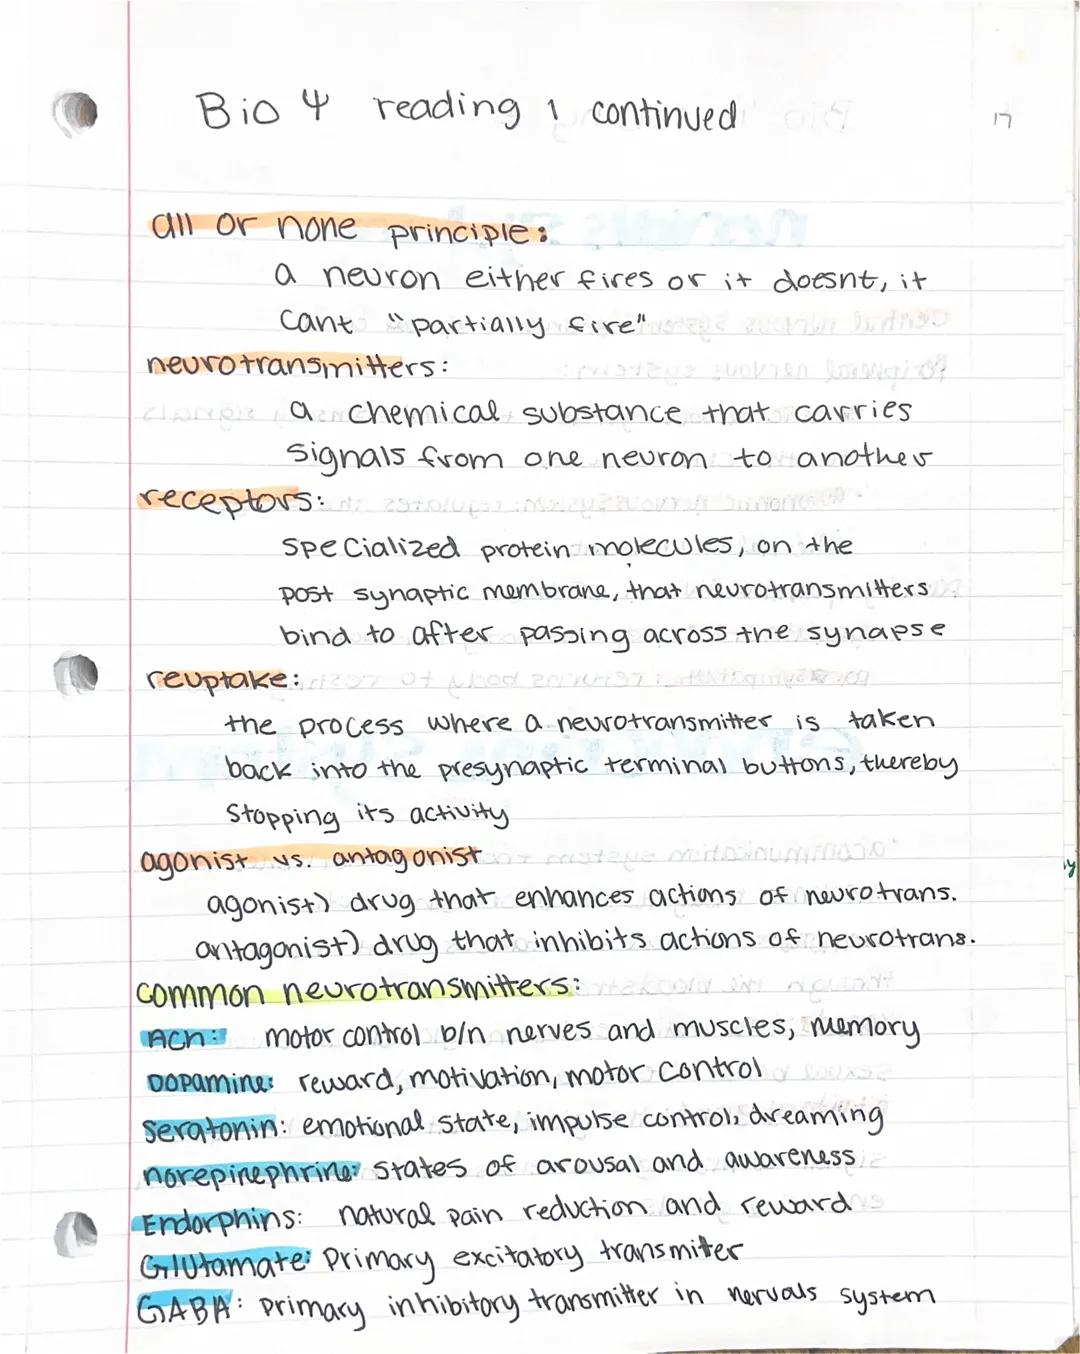 Bio 4 reading 1 continued
17
all or none principle:
a neuron either fires or it doesnt, it
cant "partially fire"
neurotransmitters:
a chemical substance that carries
signals from one neuron to another
receptors:
specialized protein molecules, on the
post synaptic membrane, that neurotransmitters
bind to after passing across the synapse
reuptake:
the process where a neurotransmitter is taken
back into the presynaptic terminal buttons, thereby
stopping its activity
agonist vs. antagonist
agonist) drug that enhances actions of neurotrans.
antagonist) drug that inhibits actions of neurotrans.
common neurotransmitters:
ACh: motor control b/n nerves and muscles, memory
Dopamine: reward, motivation, motor control
Seratonin: emotional state, impulse control, dreaming
norepinephrine: states of arousal and awareness
Endorphins: natural pain reduction and reward
Glutamate: Primary excitatory transmitter
GABA: primary inhibitory transmitter in nervous system